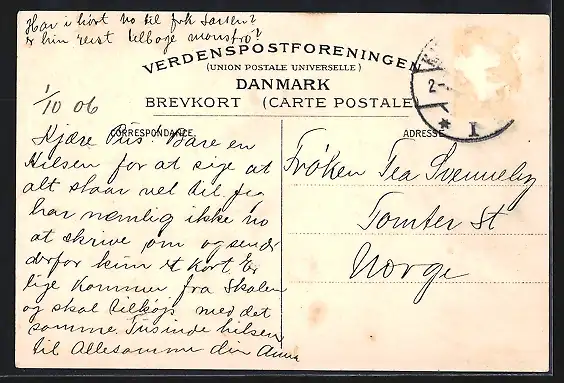 Har i hørt no til frk Larsen?
er hun reist tilbage monstro?
VERDENSPOSTFORENINGEN
(UNION POSTALE UNIVERSELLE)
DANMARK
BREVKORT (CARTE POSTALE
1/10 06
CORRESPONDANCE
ADRESSE
2-
* I
Kjære Pus! Bare en
Hilsen for at sige at
alt staar vel til jeg
har nemlig ikke no
at skrive om og sender
derfor kun et kort. Er
lige kommen fra skolen
og skal til med det
samme. Tusinde hilsen
til Allesamme din Anna
Frøken Tea Svenneby
Tomter St
Norge